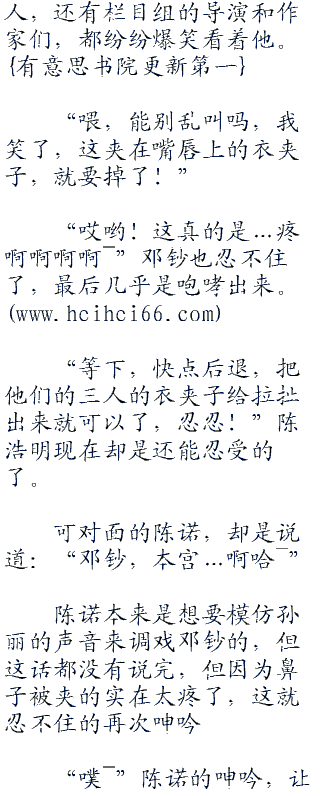 人，还有栏目组的导演和作
家们，都纷纷爆笑看着他。
{有意思书院更新第一}
“喂，能别乱叫吗，我
笑了，这夹在嘴唇上的衣夹
子，就要掉了！”
“哎哟！这真的是…疼
啊啊啊啊¯”邓钞也忍不住
了，最后几乎是咆哮出来。
(www.hcihci66.com)
“等下，快点后退，把
他们的三人的衣夹子给拉扯
出来就可以了，忍忍！”陈
浩明现在却是还能忍受的
了。
可对面的陈诺，却是说
道：“邓钞，本宫…啊哈¯”
陈诺本来是想要模仿孙
丽的声音来调戏邓钞的，但
这话都没有说完，但因为鼻
子被夹的实在太疼了，这就
忍不住的再次呻吟
“噗¯”陈诺的呻吟，让